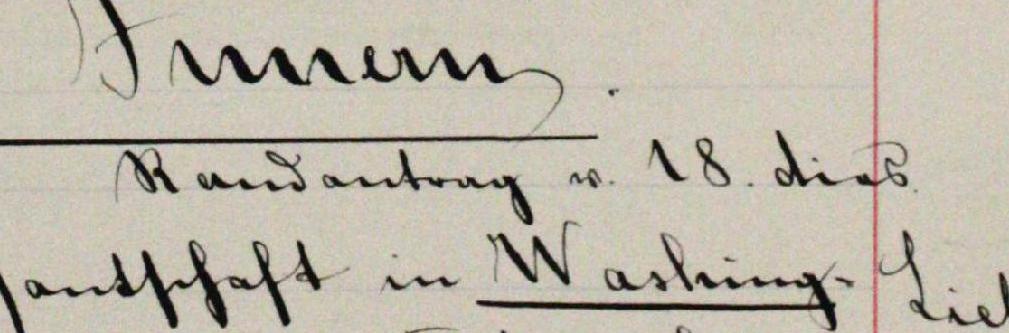 Innern.
Randantrag v. 18. dies.
santschaft in Washing-